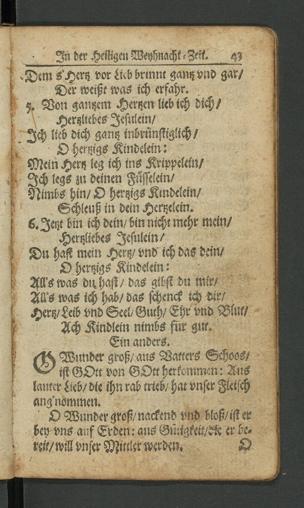 In der Heiligen Weyhnacht-Zeit. 43
Dem s'Hertz vor Lieb brinnt gantz vnd gar/
Der weißt was ich erfahr.
5. Von gantzem Hertzen lieb ich dich/
Hertzliebes Jesulein/
Ich lieb dich gantz inbrünstiglich/
O hertzigs Kindelein:
Mein Hertz leg ich ins Krippelein/
Ich legs zu deinen Füsselein/
Nimbs hin/ O hertzigs Kindelein/
Schleuß in dein Hertzelein.
6. Jetzt bin ich dein/ bin nicht mehr mein/
Hertzliebes Jesulein/
Du hast mein Hertz/ vnd ich das dein/
O hertzigs Kindelein:
All's was du hast/ das gibst du mir/
All's was ich hab/ das schenck ich dir/
Hertz/ Leib vnd Seel/ Guth/ Ehr vnd Blut/
Ach Kindlein nimbs für gut.
Ein anders.
O Wunder groß/ aus Vatters Schoos/
ist GOtt von GOtt herkommen: Aus
lauter Lieb/ die ihn rab trieb/ hat vnser Fleisch
ang'nommen.
O Wunder groß/ nackend vnd bloß/ ist er
bey vns auf Erden: aus Gütigkeit/ ist er be-
reit/ will vnser Mittler werden. O